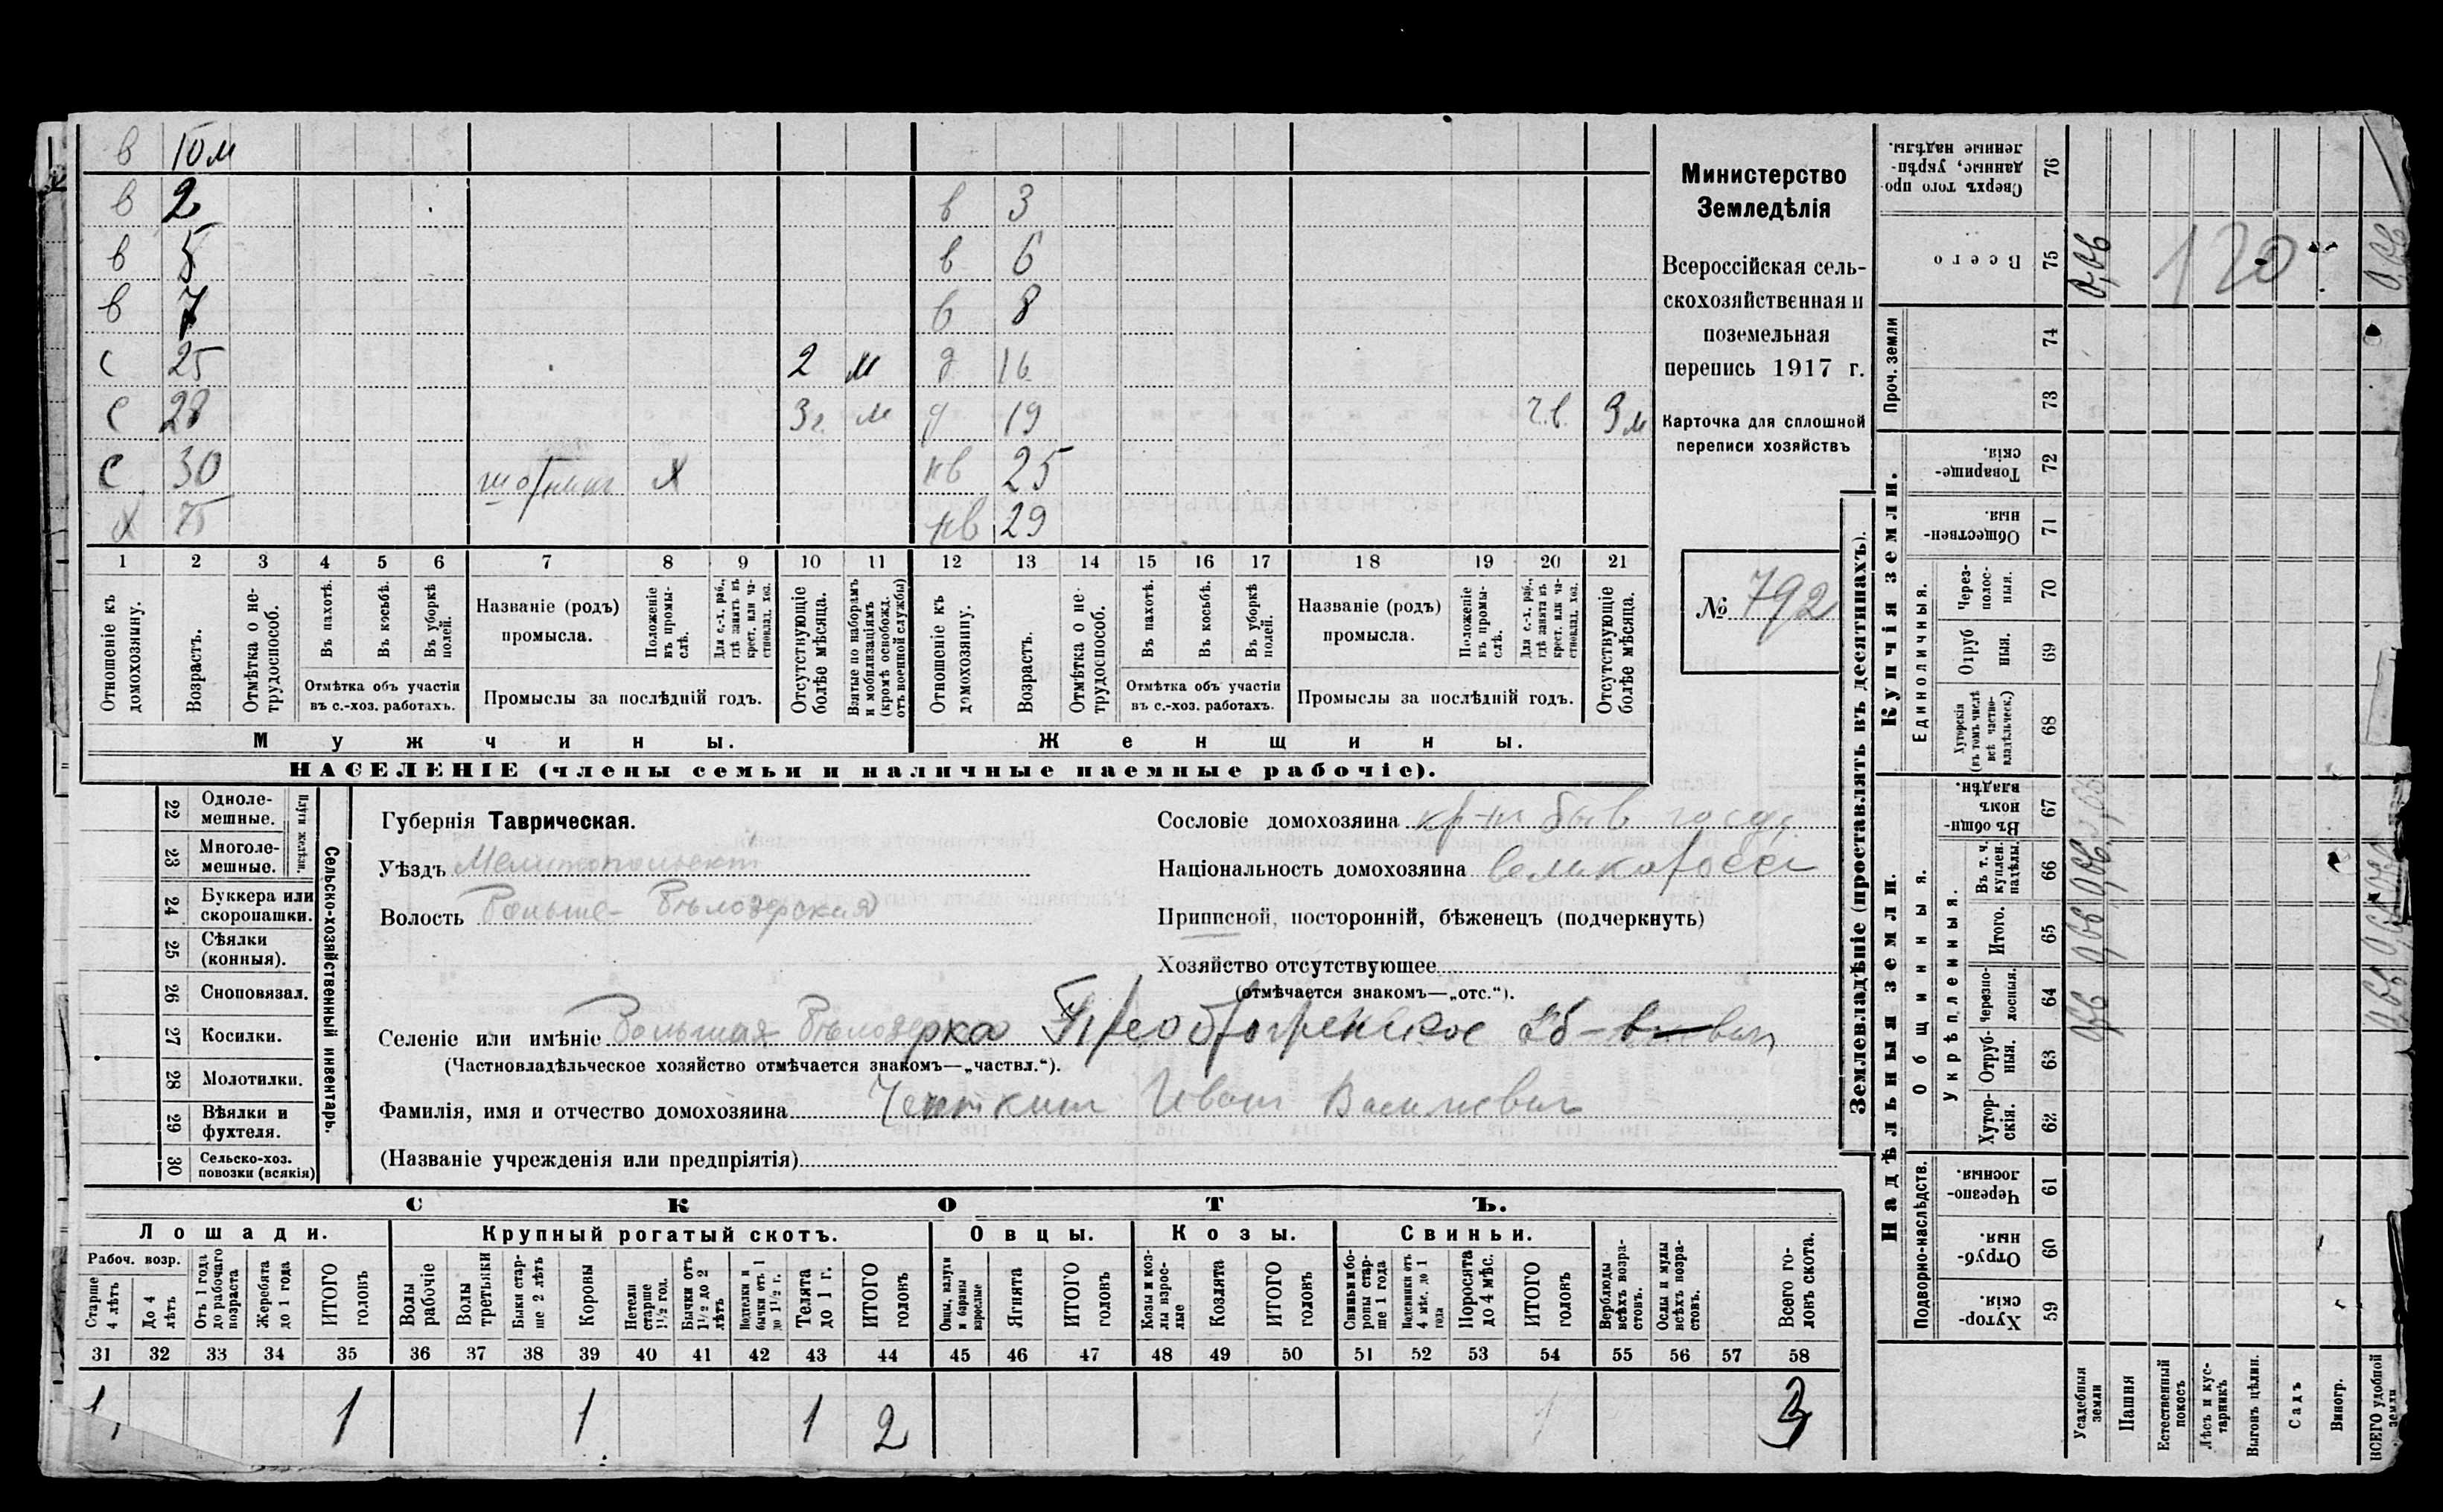 в 10м
в 2 в 3
в 5 в 6
в 7 в 8
с 25 2 м д 16
с 28 3г. м д 19 3 м
с 30 х 25
х 75 29
1 2 3 4 5 6 7 8 9 10 11 12 13 14 15 16 17 18 19 20 21
Отношеніе къ домохозяину.
Возрастъ.
Отмѣтка о не-трудоспособ.
Въ пахотѣ.
Въ косьбѣ.
Въ уборкѣ полей.
Отмѣтка объ участіи въ с.-хоз. работахъ.
Названіе (родъ) промысла.
Положеніе въ промы-слѣ.
Для с.-х. раб., гдѣ занятъ въ крест. или ча-стновлад. хоз.
Промыслы за послѣдній годъ.
Отсутствующіе болѣе мѣсяца.
Взятые по наборамъ и мобилизаціямъ (кромѣ освобожд. отъ военной службы)
Отношеніе къ домохозяину.
Возрастъ.
Отмѣтка о не-трудоспособ.
Въ пахотѣ.
Въ косьбѣ.
Въ уборкѣ полей.
Отмѣтка объ участіи въ с.-хоз. работахъ.
Названіе (родъ) промысла.
Положеніе въ промы-слѣ.
Для с.-х. раб., гдѣ занята въ крест. или ча-стновлад. хоз.
Промыслы за послѣдній годъ.
Отсутствующіе болѣе мѣсяца.
Мужчины. Женщины.
НАСЕЛЕНІЕ (члены семьи и наличные наемные рабочіе).
Министерство
Земледѣлія
Всероссійская сель-
скохозяйственная и
поземельная
перепись 1917 г.
Карточка для сплошной
переписи хозяйствъ
№ 792
Сельско-хозяйственный инвентарь.
Плуги желѣзн.
22 Одноле-мешные.
23 Многоле-мешные.
24 Буккера или скоропашки.
25 Сѣялки (конныя).
26 Сноповязал.
27 Косилки.
28 Молотилки.
29 Вѣялки и фухтеля.
30 Сельско-хоз. повозки (всякія)
Губернія Таврическая.
Уѣздъ Мелитопольскій
Волость Больше-Бѣлозерская
Сословіе домохозяина кр-нъ быв госуд.
Національность домохозяина великороссъ
Приписной, посторонній, бѣженецъ (подчеркнуть)
Хозяйство отсутствующее
(отмѣчается знакомъ—„отс.“).
Селеніе или имѣніе Большая Бѣлозерка Преображенское
(Частновладѣльческое хозяйство отмѣчается знакомъ—„частвл.“).
Фамилія, имя и отчество домохозяина Иванъ Васильевич
(Названіе учрежденія или предпріятія)
СКОТЪ.
Лошади. Крупный рогатый скотъ. Овцы. Козы. Свиньи.
Рабоч. возр.
Старше 4 лѣтъ
До 4 лѣтъ
Отъ 1 года до рабочаго возраста
Жеребята до 1 года
ИТОГО головъ
Волы рабочіе
Волы третьяки
Быки стар-ше 2 лѣтъ
Коровы
Нетели старше 1½ год.
Бычки отъ 1½ до 2 лѣтъ
Нотелки и бычки отъ 1 до 1½ г.
Телята до 1 г.
ИТОГО головъ
Овцы, валухи и бараны взрослые
Ягнята
ИТОГО головъ
Козы и коз-лы взрос-лые
Козлята
ИТОГО головъ
Свиньи и бо-ровы стар-ше 1 года
Подсвинки отъ 4 мѣс. до 1 года
Поросята до 4 мѣс.
ИТОГО головъ
Верблюды всѣхъ возра-стовъ.
Ослы и мулы всѣхъ возра-стовъ.
Всего го-ловъ скота.
31 32 33 34 35 36 37 38 39 40 41 42 43 44 45 46 47 48 49 50 51 52 53 54 55 56 57 58
1 1 1 1 2 3
Землевладѣніе (проставлять въ десятинахъ).
Купчія земли.
Надѣльныя земли.
Сверхъ того про-данные, укрѣп-ленные надѣлы. 76
Всего 75
Проч. земли 74 73
Товарище-скія 72
Обществен-ныя 71
Единоличныя.
Через-полос-ныя. 70
Отруб ныя. 69
Хуторскія (въ томъ числѣ всѣ частно-владѣльческ.) 68
Общинныя.
Въ общи-номъ владѣн. 67
Укрѣпленныя.
Въ т. ч. куплен. надѣлы. 66
Итого. 65
черезпо-лосныя. 64
Отруб-ныя. 63
Хутор-скія. 62
Подворно-наслѣдств.
Черезпо-лосныя. 61
Отруб-ныя. 60
Хутор-скія. 59
Усадебныя земли
Пашня
Естественный покосъ
Лѣсъ и кус-тарникъ
Выгонъ цѣлин.
Садъ
Виногр.
ВСЕГО удобной земли
120